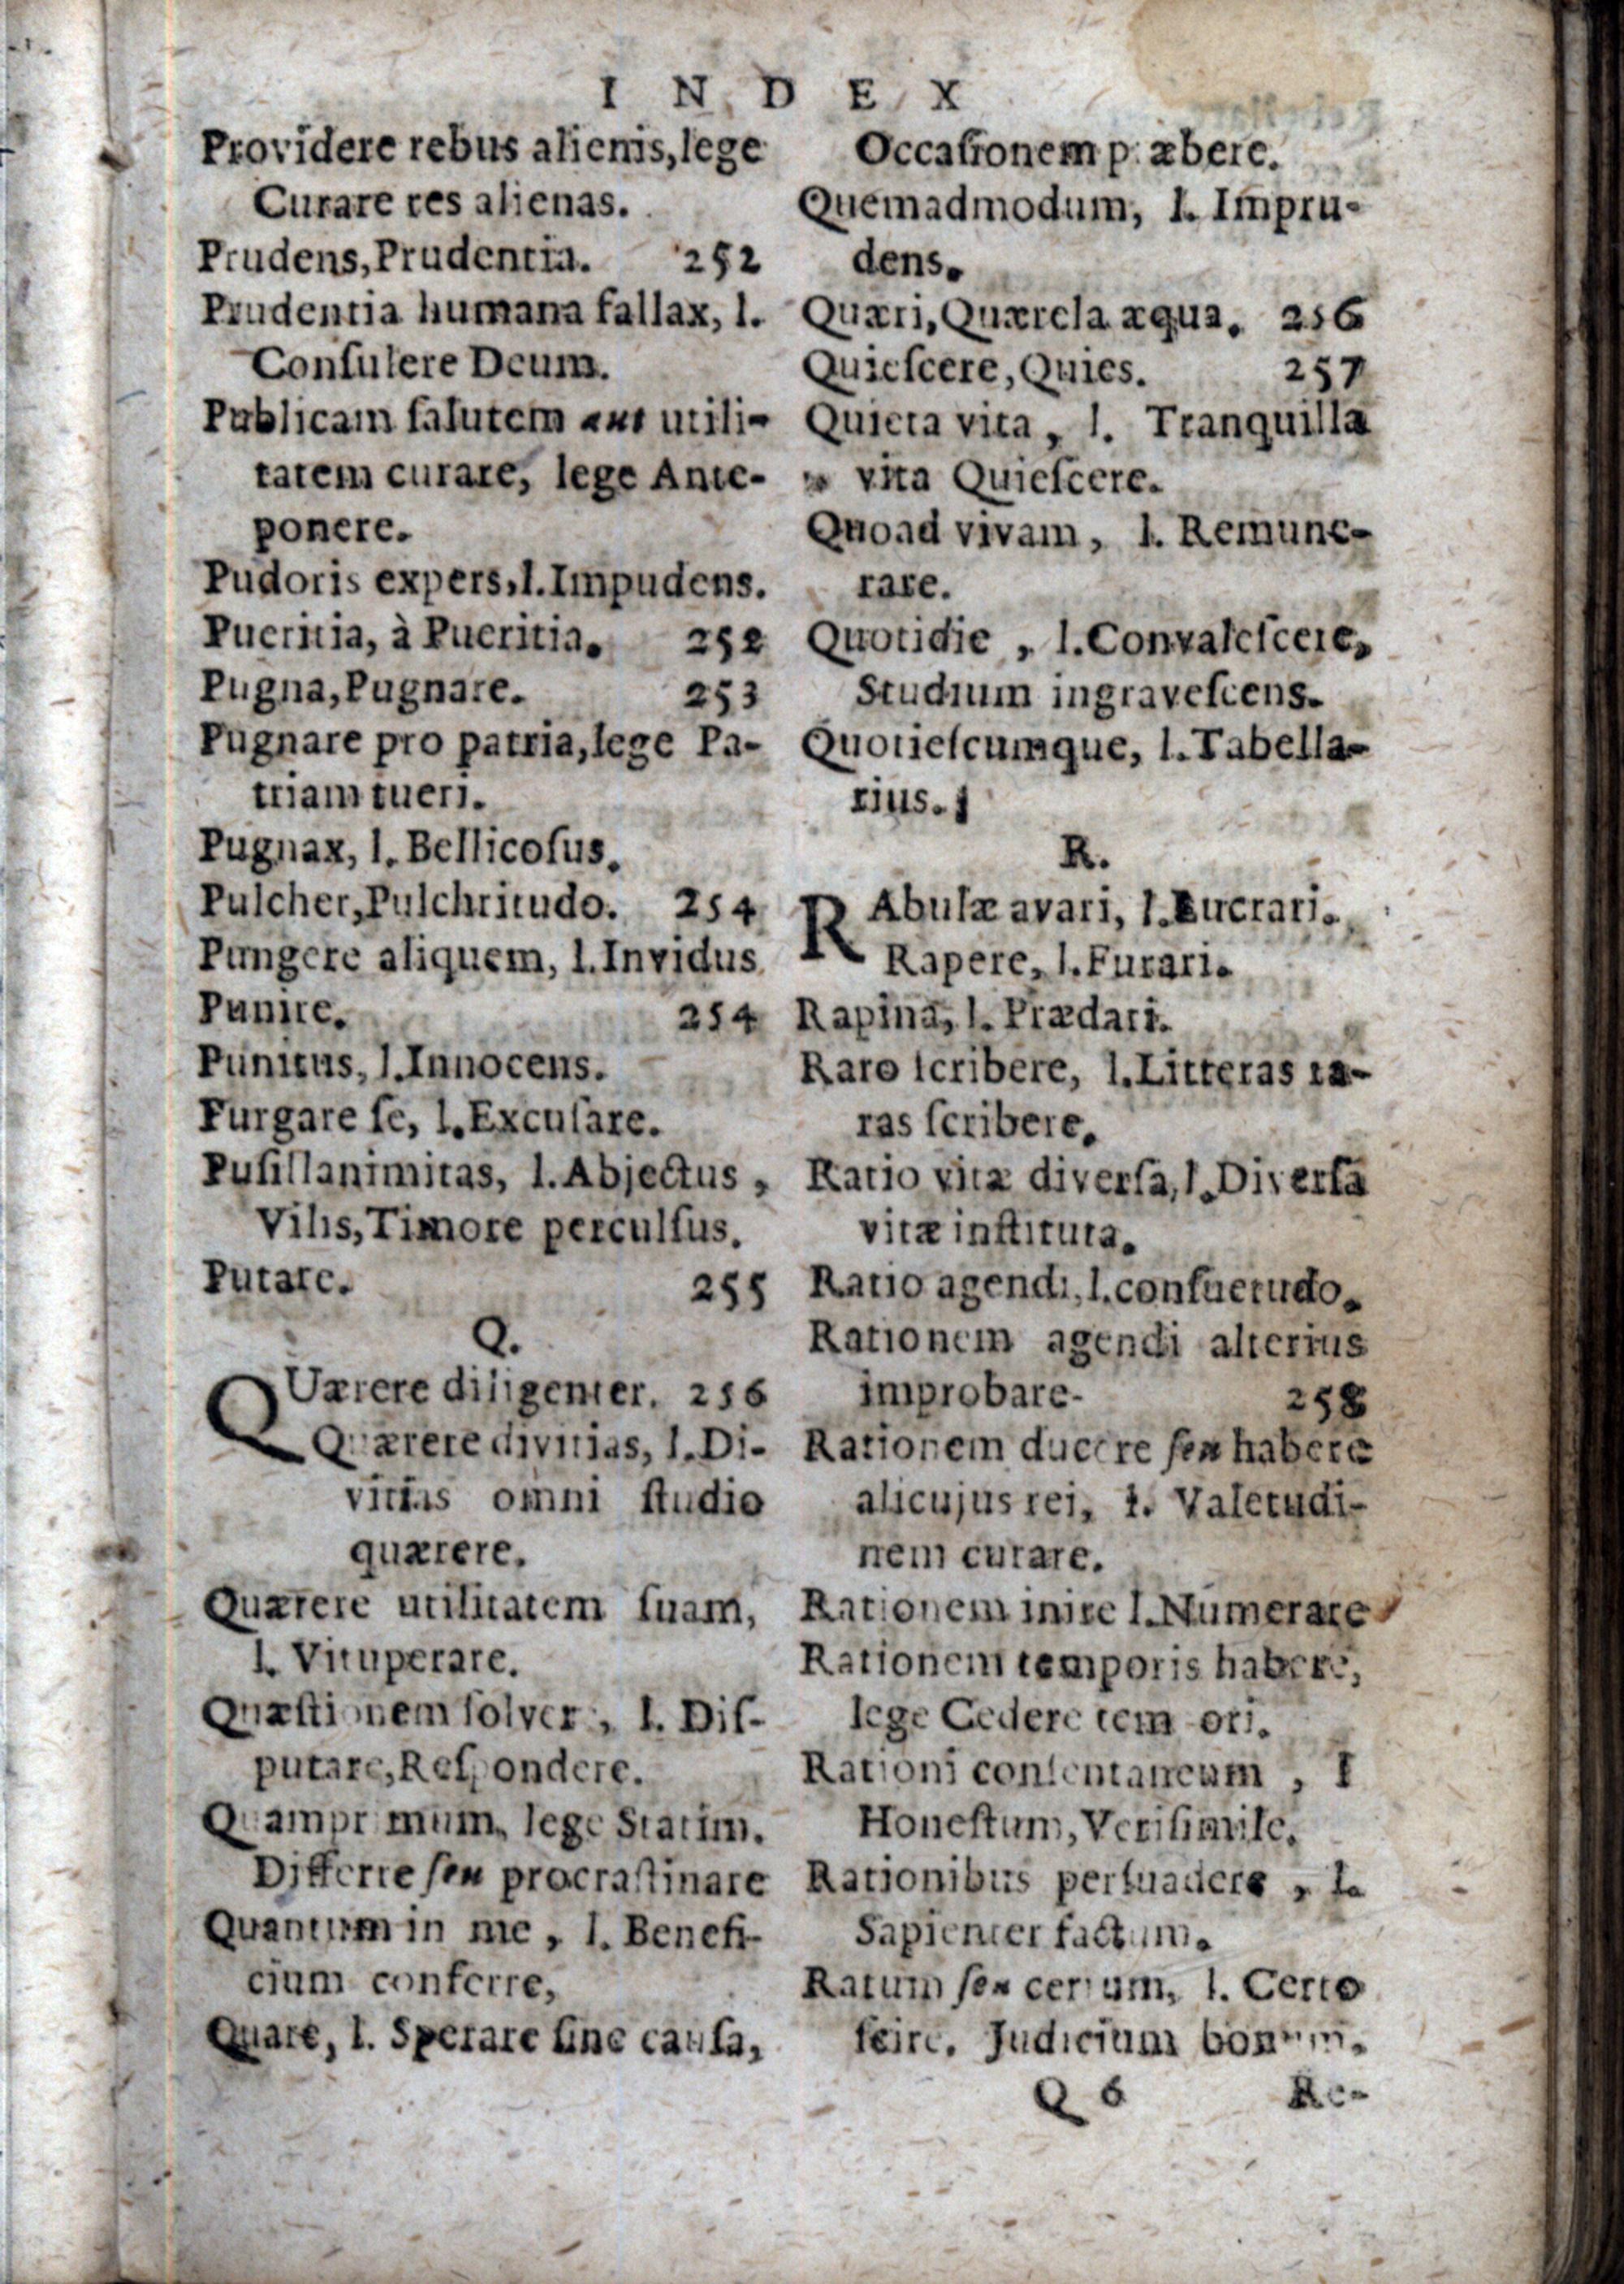 INDEX
Providere rebus alienis, lege
Curare res alienas.
Prudens, Prudentia. 252
Prudentia humana fallax, l.
Conſulere Deum.
Publicam ſalutem aut utili-
tatem curare, lege Ante-
ponere.
Pudoris expers, l. Impudens.
Pueritia, à Pueritia. 252
Pugna, Pugnare. 253
Pugnare pro patria, lege Pa-
triam tueri.
Pugnax, l. Bellicoſus.
Pulcher, Pulchritudo. 254
Pungere aliquem, l. Invidus
Punire. 254
Punitus, l. Innocens.
Purgare ſe, l. Excuſare.
Puſillanimitas, l. Abjectus,
Vilis, Timore perculſus.
Putare. 255
Q.
QUærere diligenter. 256
Quærere divitias, l. Di-
vitias omni ſtudio
quærere.
Quærere utilitatem ſuam,
l. Vituperare.
Quæſtionem ſolvere, l. Diſ-
putare, Reſpondere.
Quamprimum, lege Statim.
Differre ſeu procraſtinare
Quantum in me, l. Benefi-
cium conferre,
Quare, l. Sperare ſine cauſa,
Occaſionem præbere.
Quemadmodum, l. Impru-
dens.
Quæri, Quærela æqua. 256
Quieſcere, Quies. 257
Quieta vita, l. Tranquilla
vita Quieſcere.
Quoad vivam, l. Remune-
rare.
Quotidie, l. Convaleſcere,
Studium ingraveſcens.
Quotieſcumque, l. Tabella-
rius.
R.
RAbulæ avari, l. Lucrari.
Rapere, l. Furari.
Rapina, l. Prædari.
Raro ſcribere, l. Litteras ra-
ras ſcribere.
Ratio vitæ diverſa, l. Diverſa
vitæ inſtituta.
Ratio agendi, l. conſuetudo.
Rationem agendi alterius
improbare- 258
Rationem ducere ſeu habere
alicujus rei, l. Valetudi-
nem curare.
Rationem inire l. Numerare
Rationem temporis habere,
lege Cedere tempori.
Rationi conſentaneum, I
Honeſtum, Veriſimile.
Rationibus perſuadere, l.
Sapienter factum.
Ratum ſeu certum, l. Certo
ſcire. Judicium bonum.
Q 6 Re-